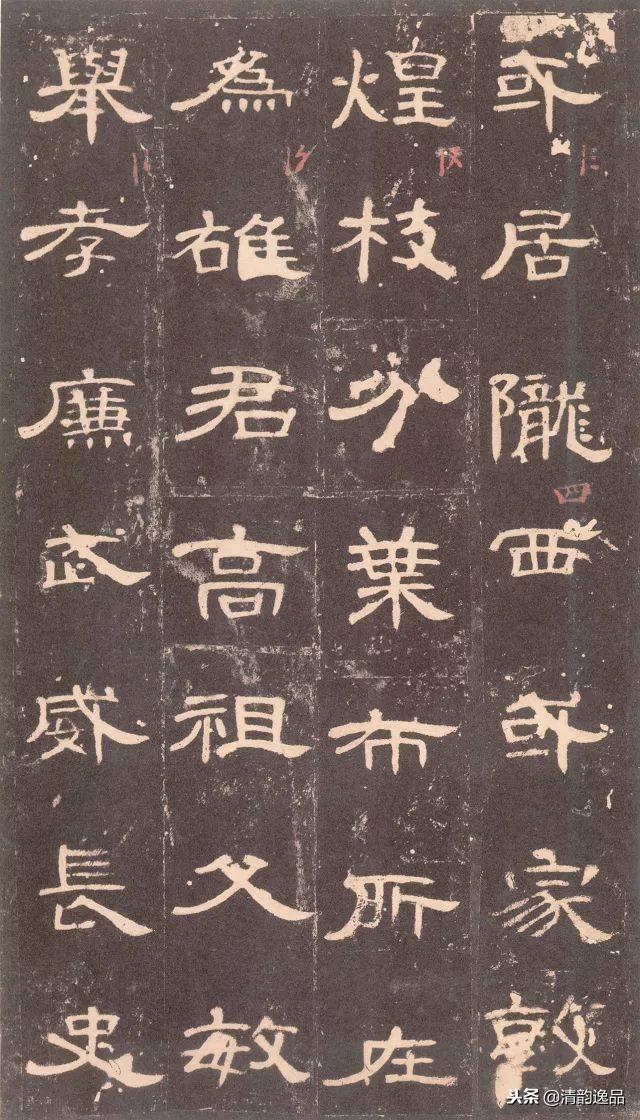 或居隴西或家敦
煌枝分葉布所在
為雄君高祖父敏
舉孝廉武威長史
四
头条@清韵逸品